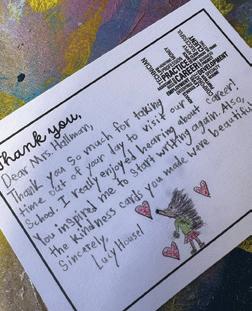 thank you,
Dear Mrs. Hallman,
Thank you so much for taking
time out of your day to visit our
School. I really enjoyed hearing about career!
You inspired me to start writing again. Also,
the kindness cards you made were beautiful
Sincerely,
Lucy House!
TECHNICIAN
PRACTICE
CAREER
DEVELOPMENT